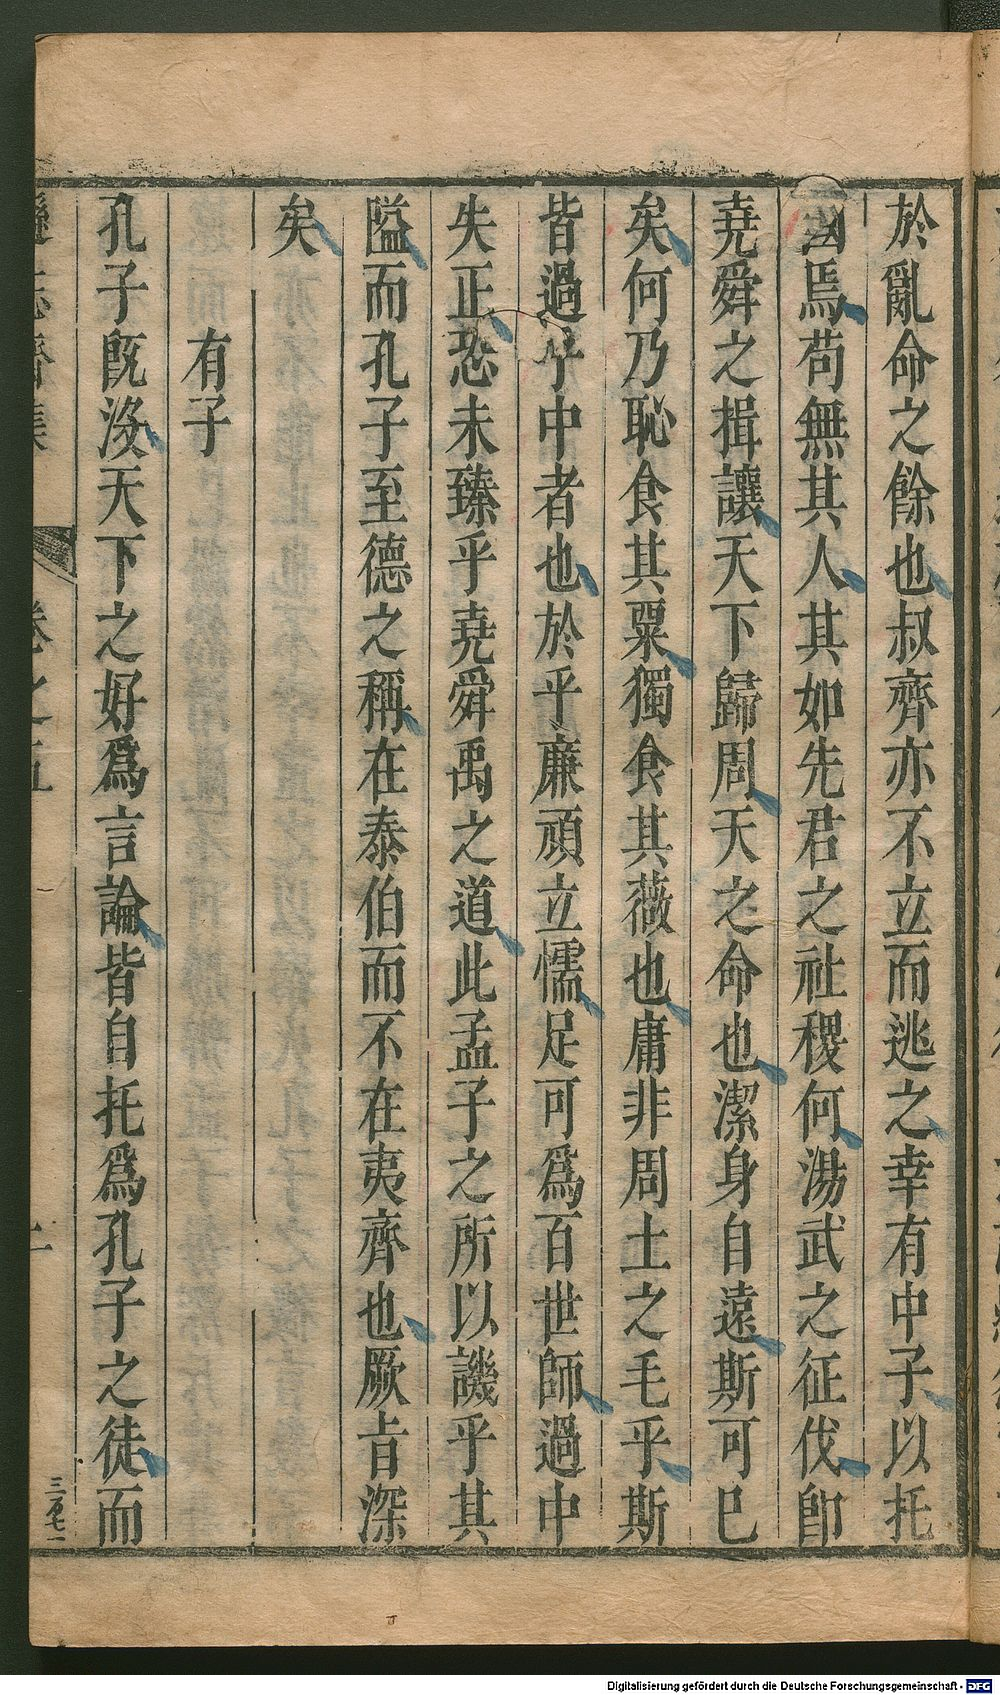 於亂命之餘也叔齊亦不立而逃之幸有中子以托
國焉苟無其人其如先君之社稷何湯武之征伐卽
堯舜之揖讓天下歸周天之命也潔身自遠斯可已
矣何乃恥食其粟獨食其薇也庸非周土之毛乎斯
皆過乎中者也於乎廉頑立懦足可爲百世師過中
失正恐未臻乎堯舜禹之道此孟子之所以譏乎其
隘而孔子至德之稱在泰伯而不在夷齊也厥旨深
矣
有子
孔子旣沒天下之好爲言論皆自托爲孔子之徒而
遜志齋集
卷之五
三百七一
Digitalisierung gefördert durch die Deutsche Forschungsgemeinschaft - DFG